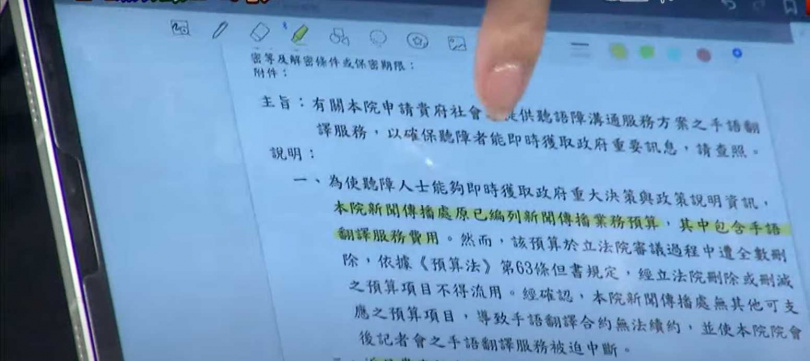 密等及解密條件或保密期限：
附件：
主旨：有關本院申請貴府社會 提供聽語障溝通服務方案之手語翻
譯服務，以確保聽障者能即時獲取政府重要訊息，請查照。
說明：
一、為使聽障人士能夠即時獲取政府重大決策與政策說明資訊，
本院新聞傳播處原已編列新聞傳播業務預算，其中包含手語
翻譯服務費用。然而，該預算於立法院審議過程中遭全數刪
除，依據《預算法》第63條但書規定，經立法院刪除或刪減
之預算項目不得流用。經確認，本院新聞傳播處無其他可支
應之預算項目，導致手語翻譯合約無法續約，並使本院院會
後記者會之手語翻譯服務被迫中斷。